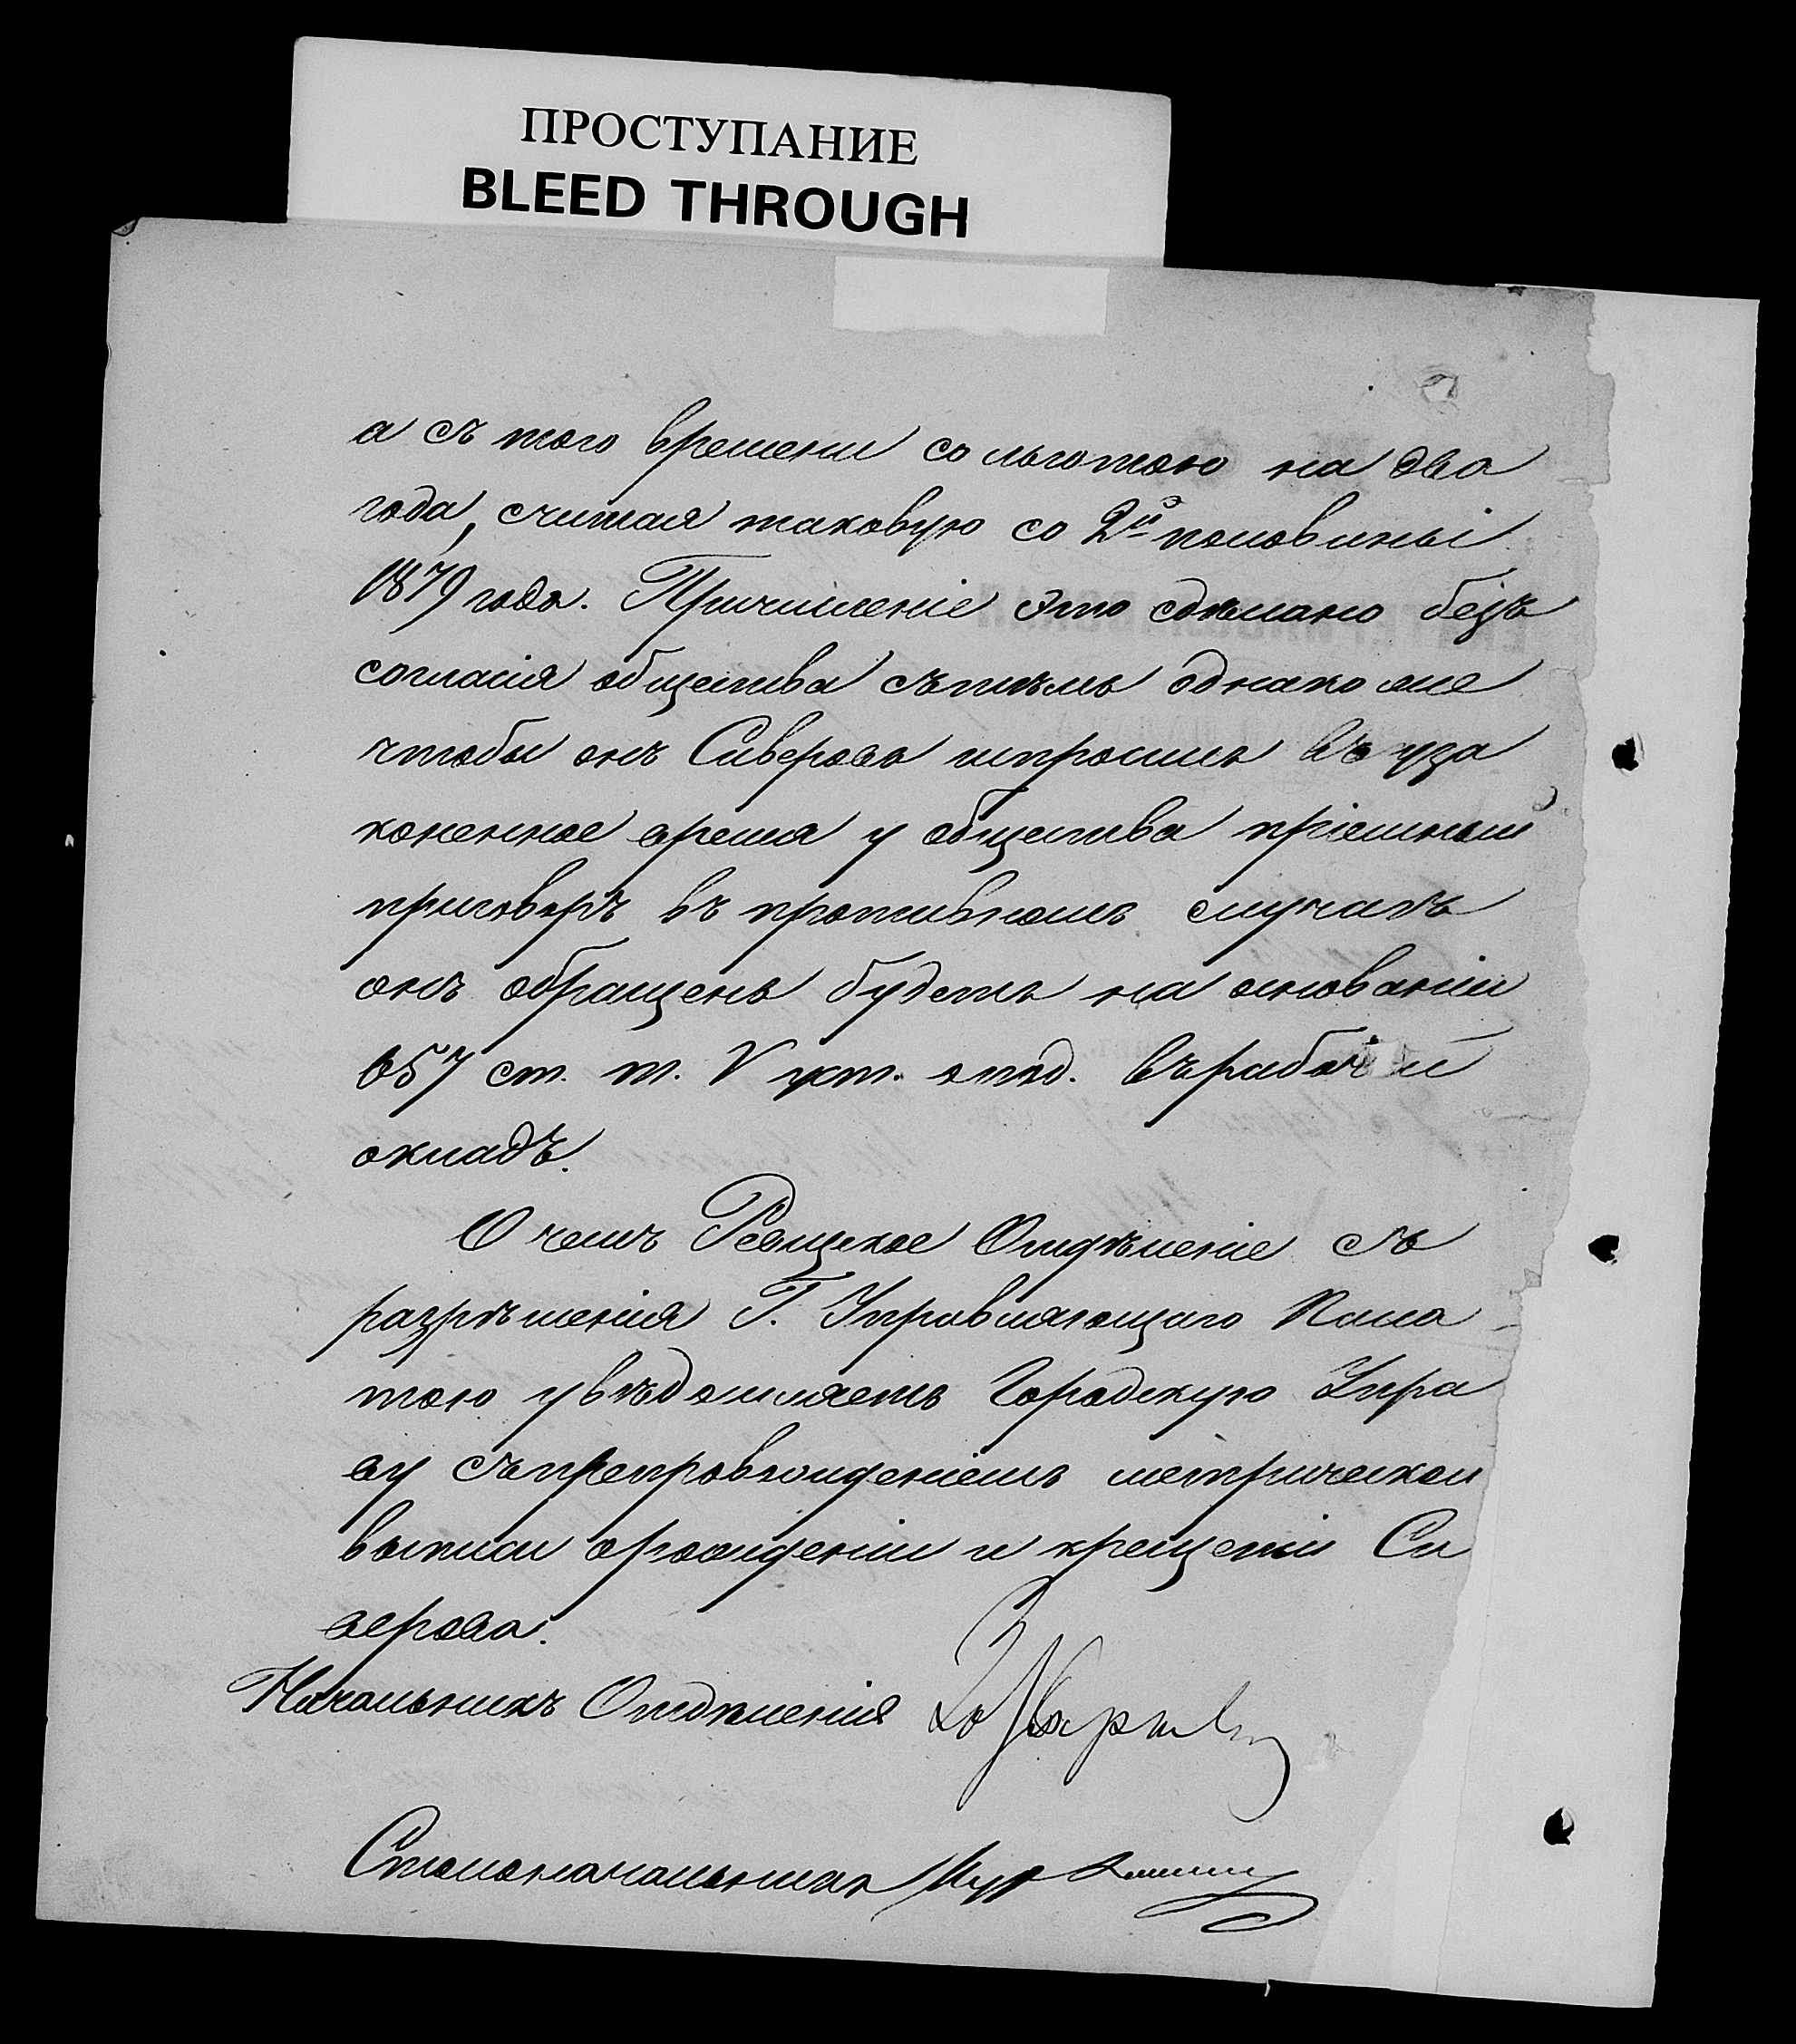 ПРОСТУПАНИЕ
BLEED THROUGH
а съ того времени со льготою на два
года, считая таковую со 2й половины
1879 года. Причисленіе это сдѣлано безъ
согласія общества съ тѣмъ однако же
чтобы онъ Сиверова испросилъ въ уза
коненное время у общества пріемный
приговоръ въ противномъ случаѣ
онъ обращенъ будетъ на основаніи
657 ст. т. V уст. о под. въ рабочій
окладъ.
О чемъ Ревизское Отдѣленіе съ
разрѣшенія Г. Управляющаго Пала
тою увѣдомляетъ Городскую Упра
ву съ препровожденіемъ метрической
выписи о рожденіи и крещеніи Си
верова.
Начальникъ Отдѣленія
Столоначальникъ